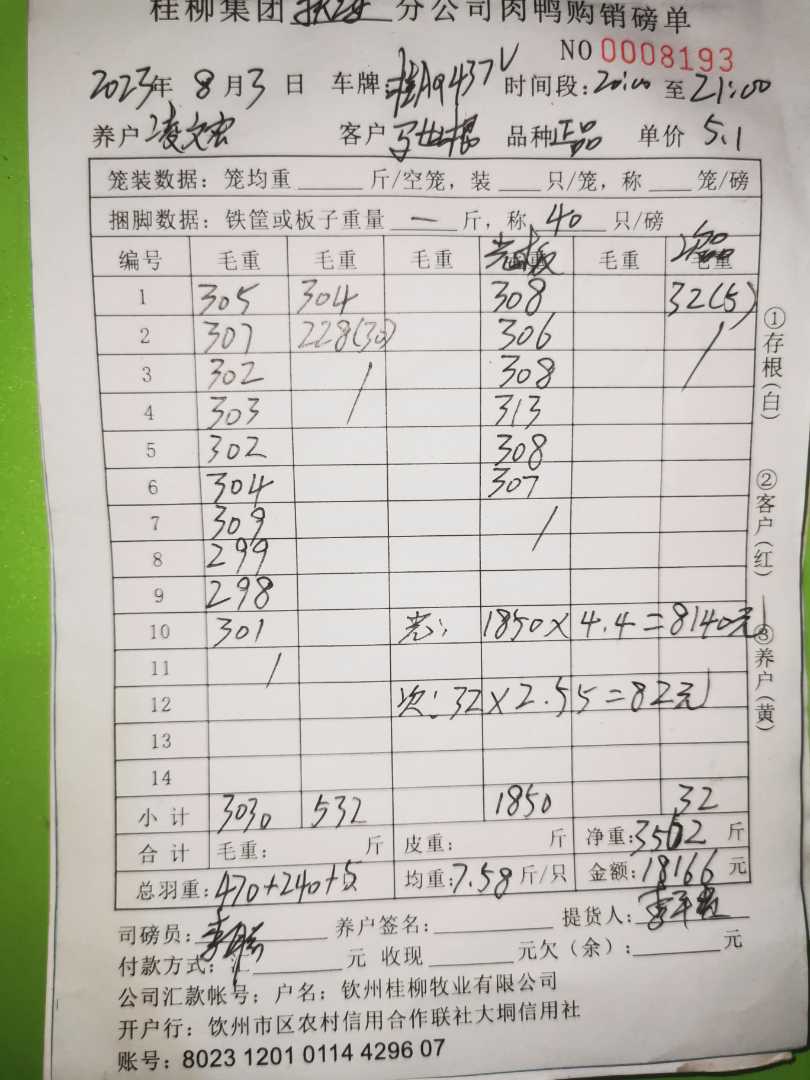 桂柳集团 分公司肉鸭购销磅单
NO 0008193
2023年 8月3日 车牌:桂A9437V 时间段:20:00至21:00
养户 凌文宏 客户 品种 正品 单价 5.1
笼装数据:笼均重 斤/空笼,装 只/笼,称 笼/磅
捆脚数据:铁筐或板子重量 一 斤,称 40 只/磅
编号 毛重 毛重 毛重 光板 毛重 次品
1 305 304 308 32(5)
2 307 228(30) 306 /
3 302 / 308
4 303 313
5 302 308
6 304 307
7 309 /
8 299
9 298
10 301 光: 1850×4.4=8140元
11 /
12 次:32×2.55=82元
13
14
小计 3030 532 1850 32
合计 毛重: 斤 皮重: 斤 净重:3562 斤
总羽重:470+240+5 均重:7.58斤/只 金额:18166元
司磅员: 养户签名: 提货人:
付款方式:汇 元 收现 元欠(余): 元
公司汇款帐号:户名:钦州桂柳牧业有限公司
开户行:钦州市区农村信用合作联社大垌信用社
账号:8023 1201 0114 4296 07
①存根(白)
②客户(红)
③养户(黄)